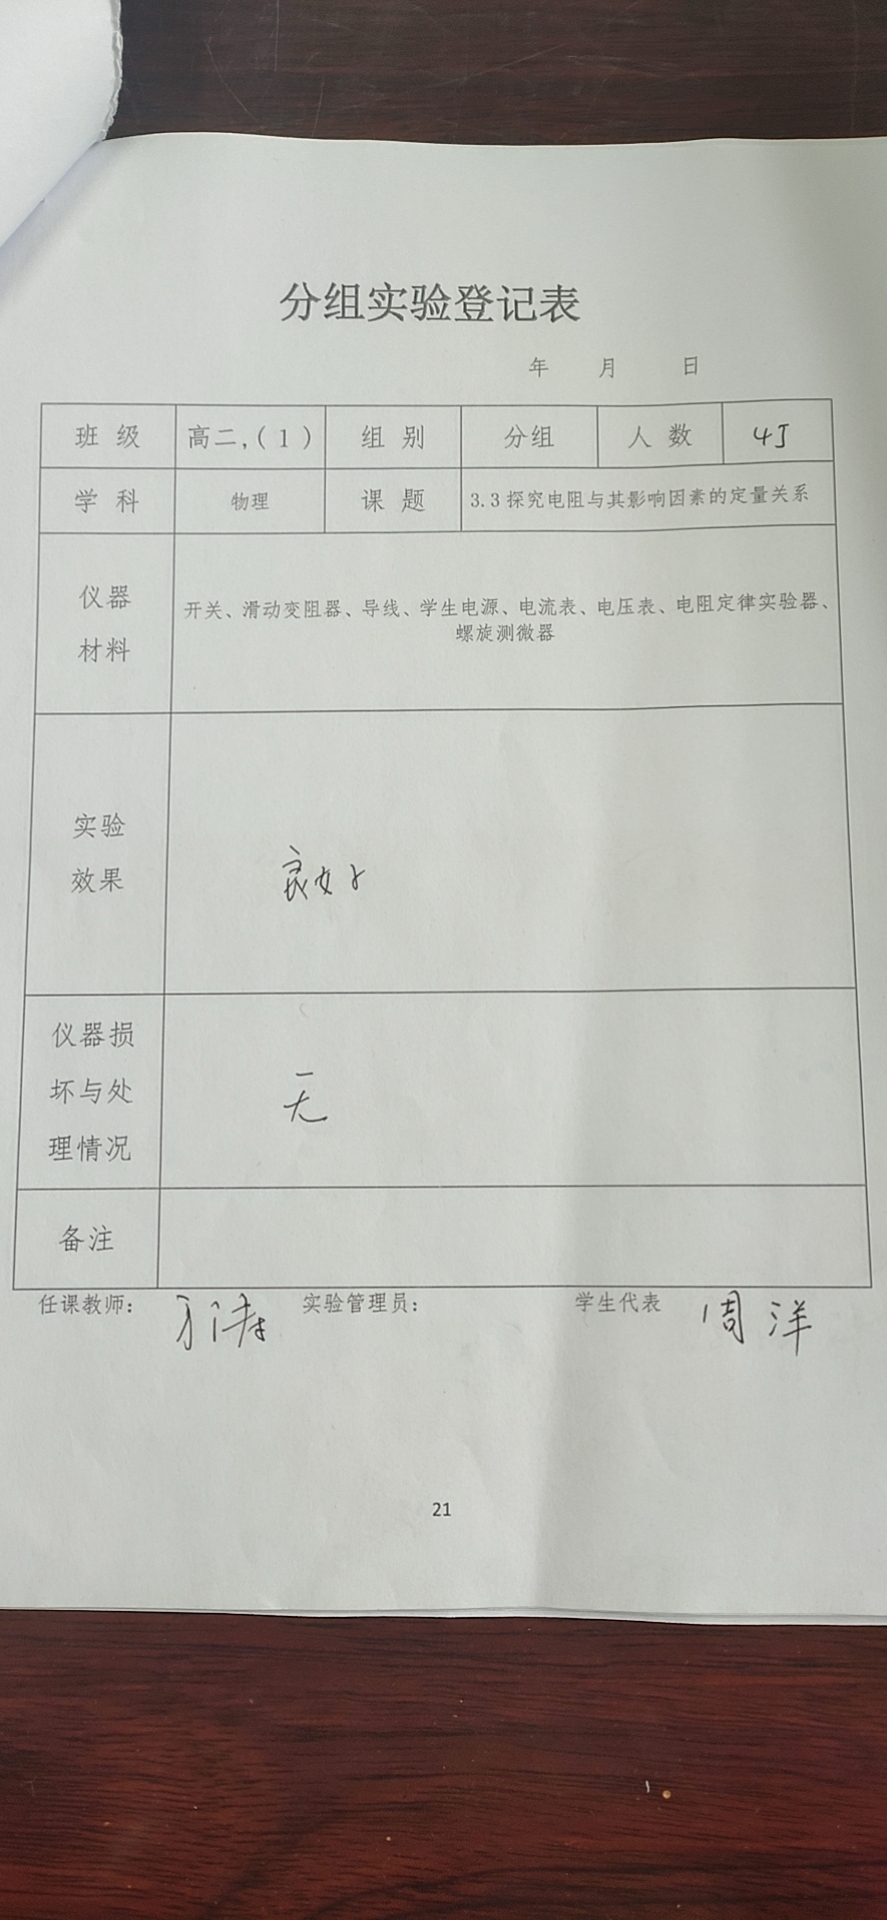 分组实验登记表
年 月 日
班 级 高二,(1) 组 别 分组 人 数 45
学 科 物理 课 题 3.3探究电阻与其影响因素的定量关系
仪器
材料
开关、滑动变阻器、导线、学生电源、电流表、电压表、电阻定律实验器、
螺旋测微器
实验
效果
良好
仪器损
坏与处
理情况
无
备注
任课教师： 实验管理员： 学生代表 周洋
21